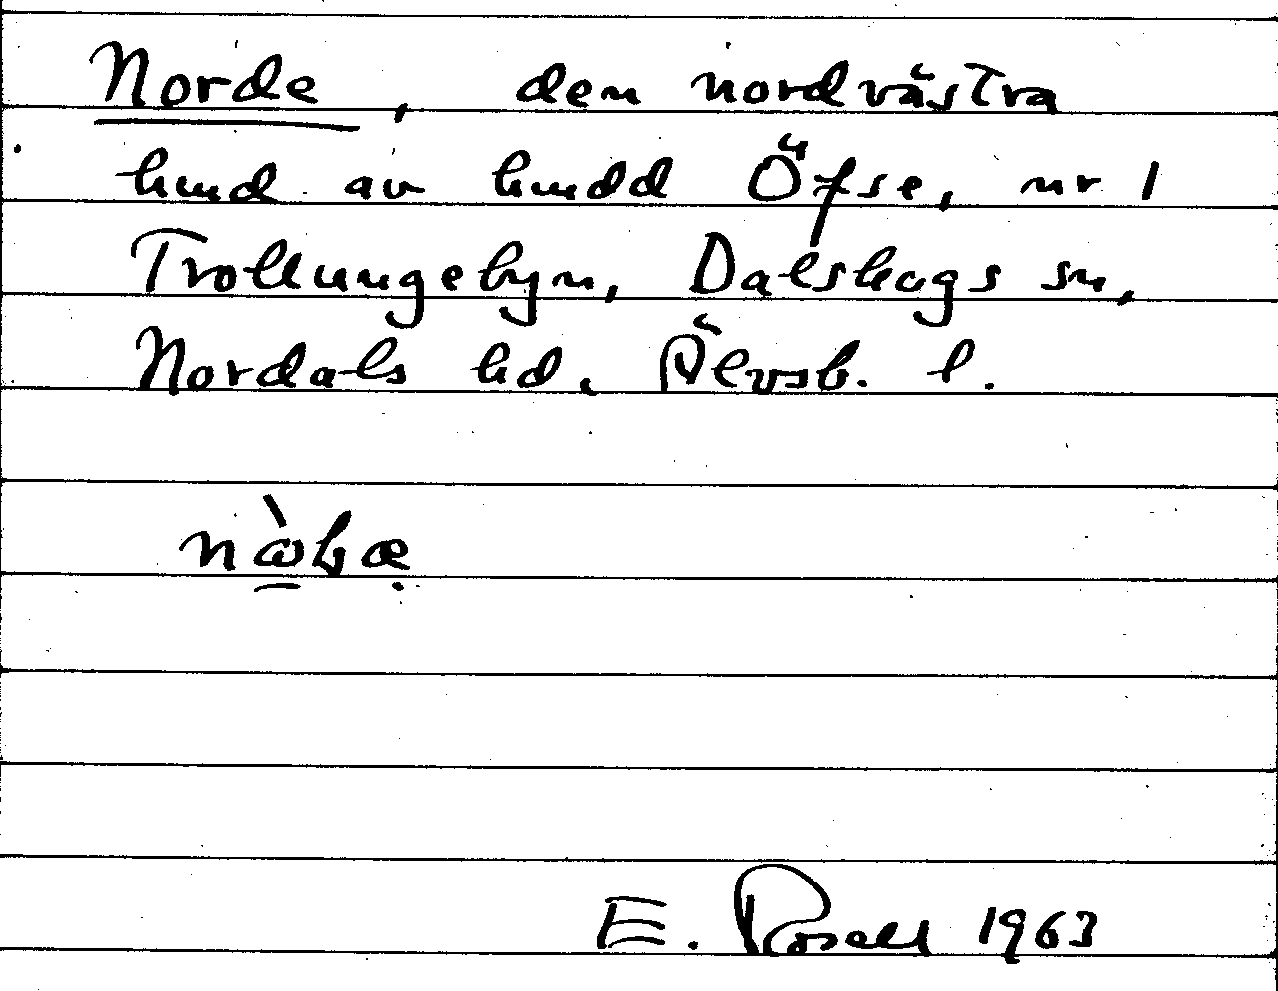 Norde, den nordvästra
hmd av hmdd Öfse, nr 1
Trollungebyn, Dalskogs sn,
Nordals hd. Älvsb. l.
E. Rosell 1963